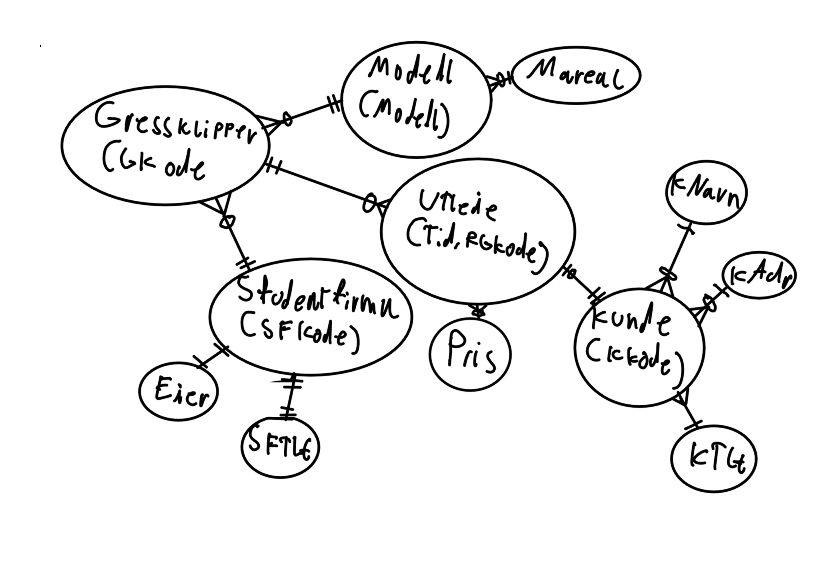 Modell
(Modell)
Mareal
Gressklipper
(GKode
Utleie
(Tid, RGkode)
KNavn
KAdr
Studentfirma
(SFKode)
Kunde
(KKode)
Pris
Eier
SFTlf
KTlf